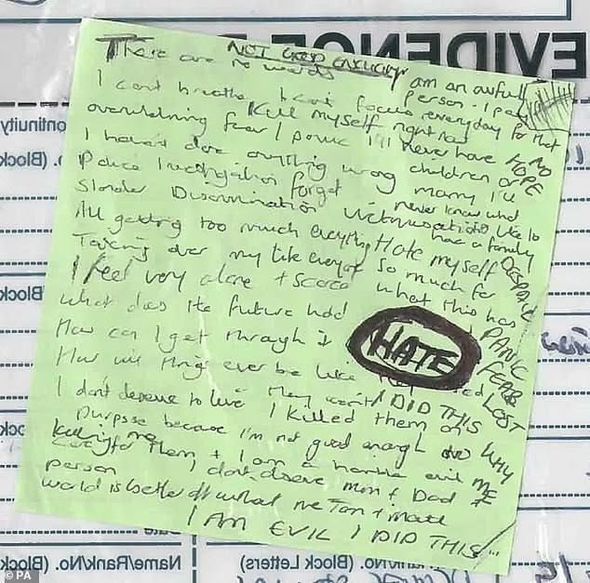 EVIDENCE
NOT GOOD ENOUGH
There are no words
I am an awful person. I pay everyday for that
I cant breathe I cant focus
Kill myself right now
overwhelming fear / panic I'll never have NO HOPE
children or
I haven't done anything wrong marry I'll
never know what
Police investigation forget
its like to have a family
Slander Discrimination Victimisation
All getting too much everything Hate myself DESPAIR
Taking over my life everyday so much for
what this has
I feel very alone + scared
PANIC
What does the future hold
FEAR
How can I get through it
HATE
LOST
How will things ever be like
I DID THIS
I dont deserve to live I killed them on
WHY
purpose because I'm not good enough
ME
care for them + I am a horrible evil
Killing me
person I dont deserve Mum + Dad
world is better off without me
I AM EVIL I DID THIS
continuity
No. (Block
No. (Block
(Block
Block
Date
Name/Rank/No. (Block Letters)
No. (Block)
© PA